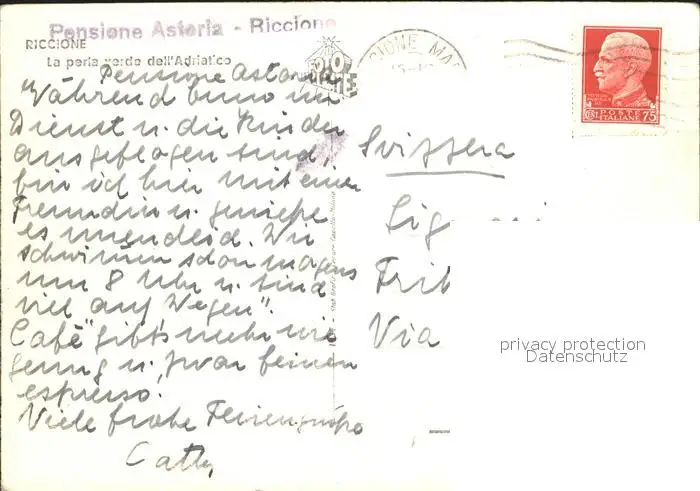 Pensione Astoria - Riccione
RICCIONE
La perla verde dell'Adriatico
Pensione Astoria
Während bruno im
Dienst u. die Kinder
ausgeflogen sind,
bin ich hier mit einer
Freundin u. genieße
es unendlich. Wir
schwimmen schon morgens
um 8 Uhr u. sind
viel auf "Wegen".
"Café" gibt's mehr wie
genug u. zwar feinen
espresso.
Viele frohe Feriengrüße
Catty
CIONE MA
POSTE
ITALIANE 75
Svizzera
Sig
Frit
Via
privacy protection
Datenschutz